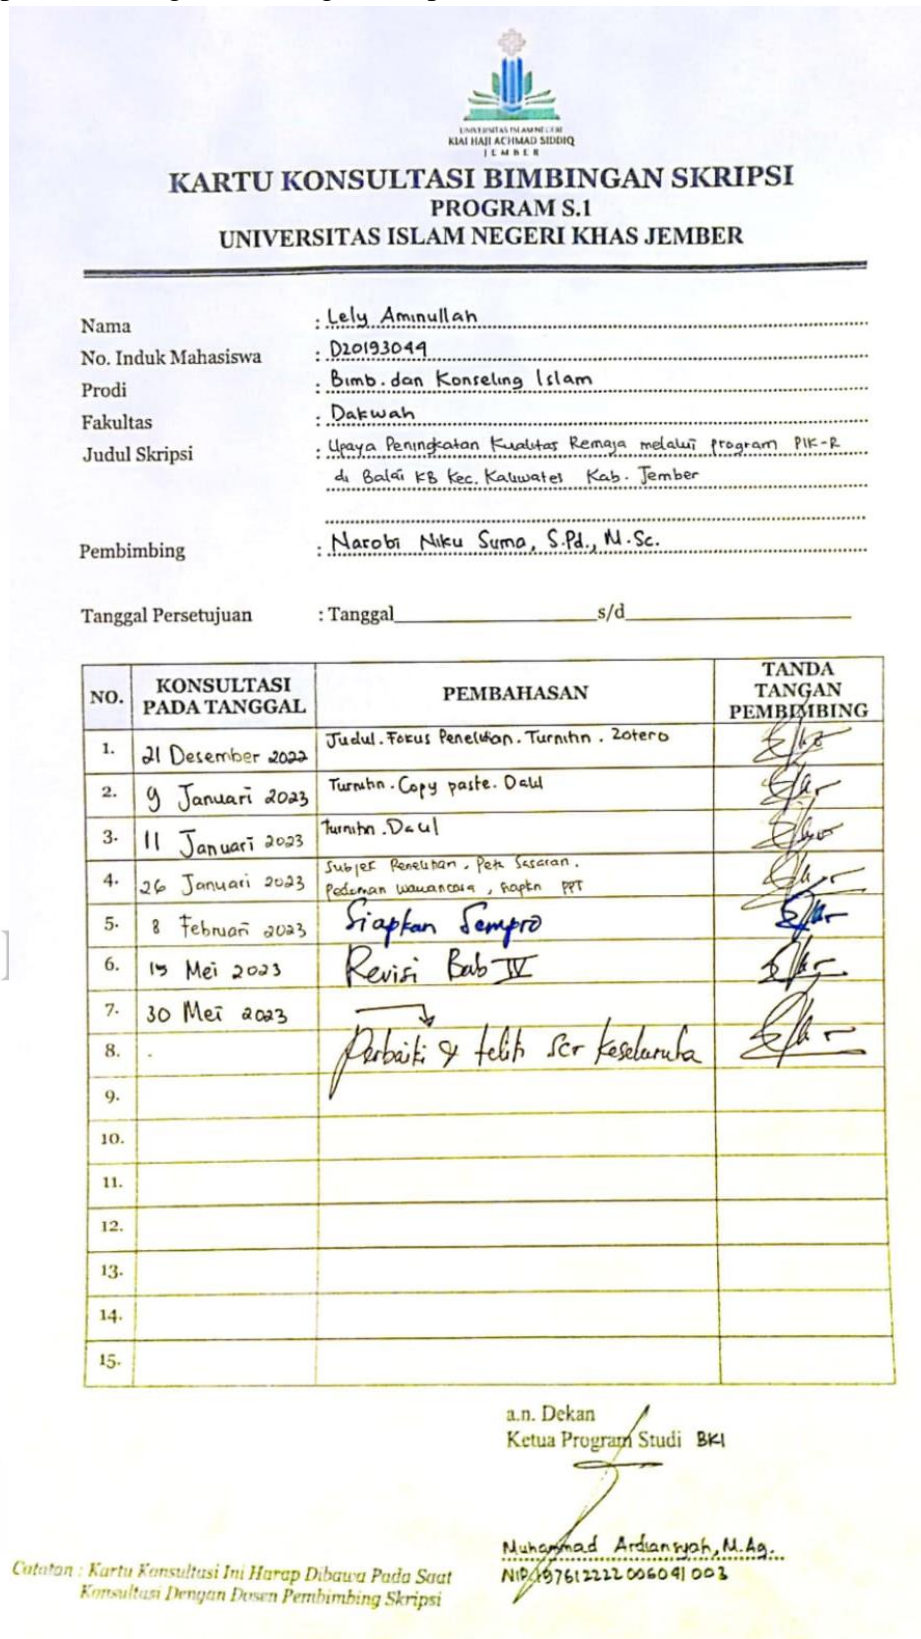 UNIVERSITAS ISLAM NEGERI
KIAI HAJI ACHMAD SIDDIQ
JEMBER
KARTU KONSULTASI BIMBINGAN SKRIPSI
PROGRAM S.1
UNIVERSITAS ISLAM NEGERI KHAS JEMBER
Nama : Lely Aminullah
No. Induk Mahasiswa : D20193049
Prodi : Bimb. dan Konseling Islam
Fakultas : Dakwah
Judul Skripsi : Upaya Peningkatan Kualitas Remaja melalui program PIK-R
di Balai KB Kec. Kaliwates Kab. Jember
Pembimbing : Narobi Niku Suma, S.Pd., M.Sc.
Tanggal Persetujuan : Tanggal s/d
NO. KONSULTASI PADA TANGGAL PEMBAHASAN TANDA TANGAN PEMBIMBING
1. 21 Desember 2022 Judul. Fokus Penelitian. Turnitin. Zotero
2. 9 Januari 2023 Turnitin. Copy paste. Dalil
3. 11 Januari 2023 Turnitin. Dalil
4. 26 Januari 2023 Subjek Penelitian. Sasaran.
Pedoman wawancara, PPT
5. 8 Februari 2023 Siapkan Sempro
6. 15 Mei 2023 Revisi Bab IV
7. 30 Mei 2023
8. Perbaiki & teliti scr keseluruha
9.
10.
11.
12.
13.
14.
15.
a.n. Dekan
Ketua Program Studi BKI
Muhammad Ardiansyah, M.Ag.
NIP. 197612222006041003
Catatan : Kartu Konsultasi Ini Harap Dibawa Pada Saat
Konsultasi Dengan Dosen Pembimbing Skripsi